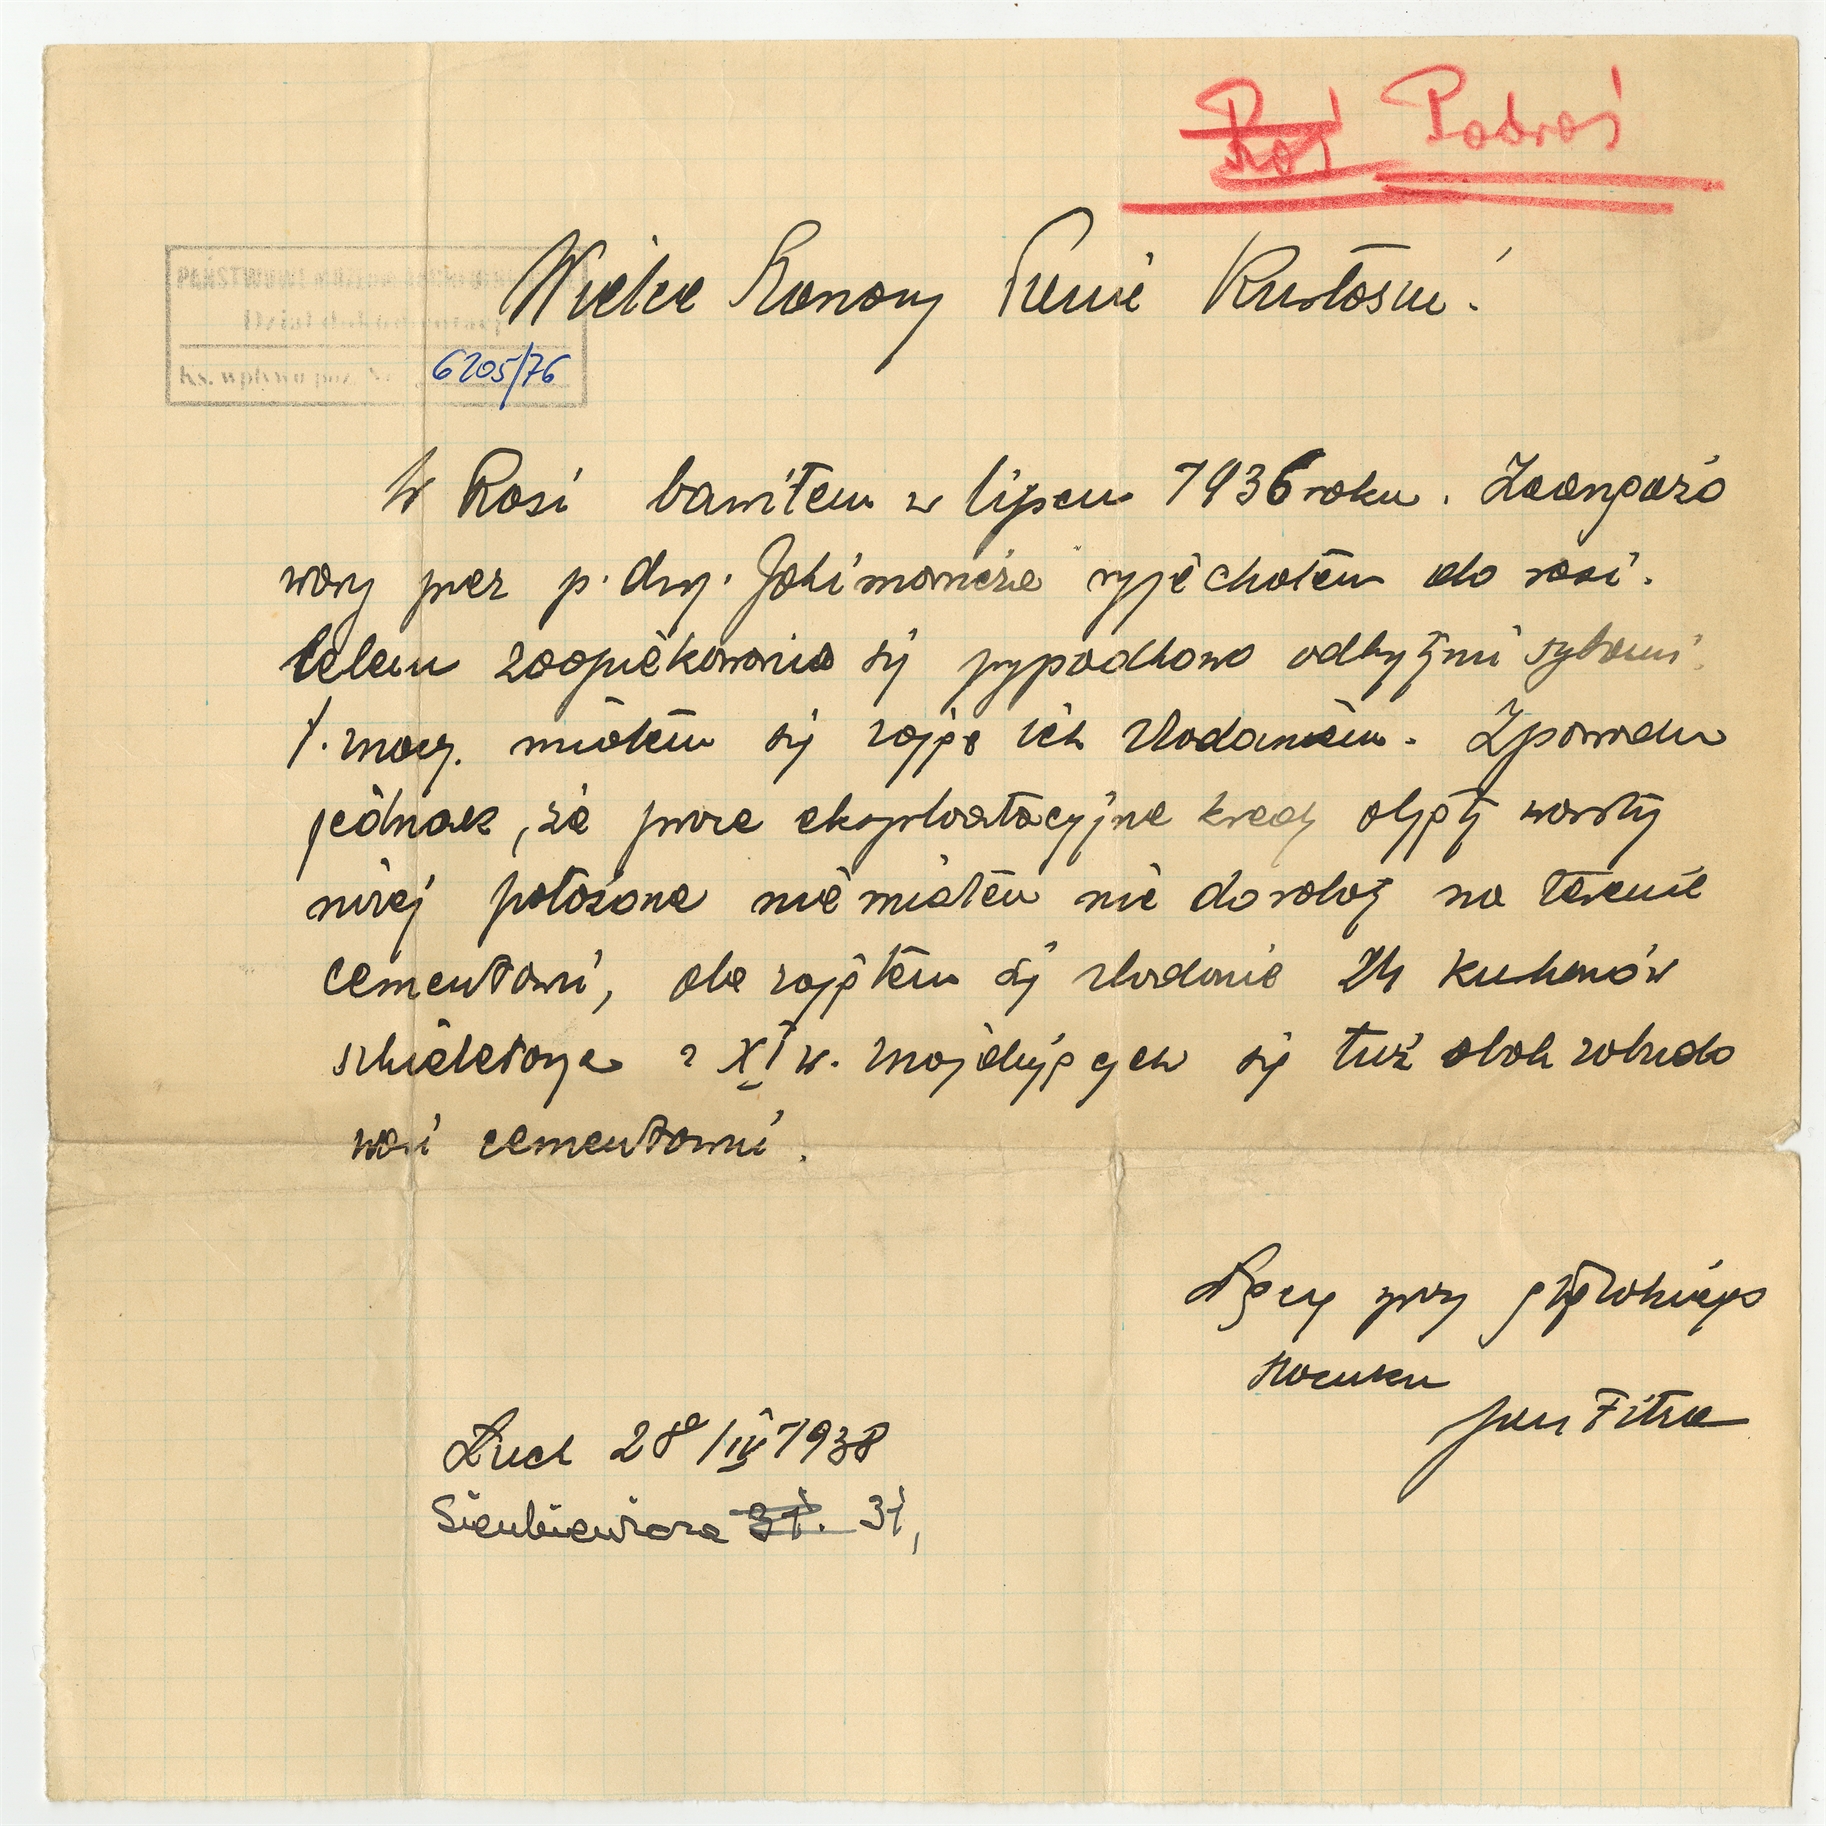 Roś Podroś
PAŃSTWOWE MUZEUM ARCHEOLOGICZNE
Dział dokumentacji
Ks. wpływu poz. Nr 6205/76
Wielce Szanowny Panie Kustoszu.
W Rosi bawiłem w lipcu 1936 roku. Zaangażo
wany przez p. dyr. Jakimowicza wyjechałem do rosi.
Celem zaopiekowania się przypadkowo odkrytymi
t. znacz. miałem się zająć ich zbadaniem. Zpowodu
jednak, że prace eksploatacyjne kredy objęły warstwy
niżej położone nie miałem nic do roboty na terenie
cementowni, ale zająłem się zbadanie 24 kurhanów
szkieletowych z XI w. znajdujących się tuż obok zabudo
wań cementowni.
Łączę wyrazy głębokiego
szacunku
Jan Fitzke
Łuck 28/IV 1938
Sienkiewicza 31. 31,